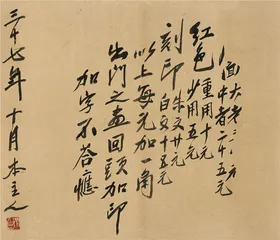 面大者
中者二十五元
红色
重用十元
少用五元
刻印
朱文廿元
白文十五元
以上每元加一角
出門之畫回頭加印
加字不答應
三十七年十月本主人